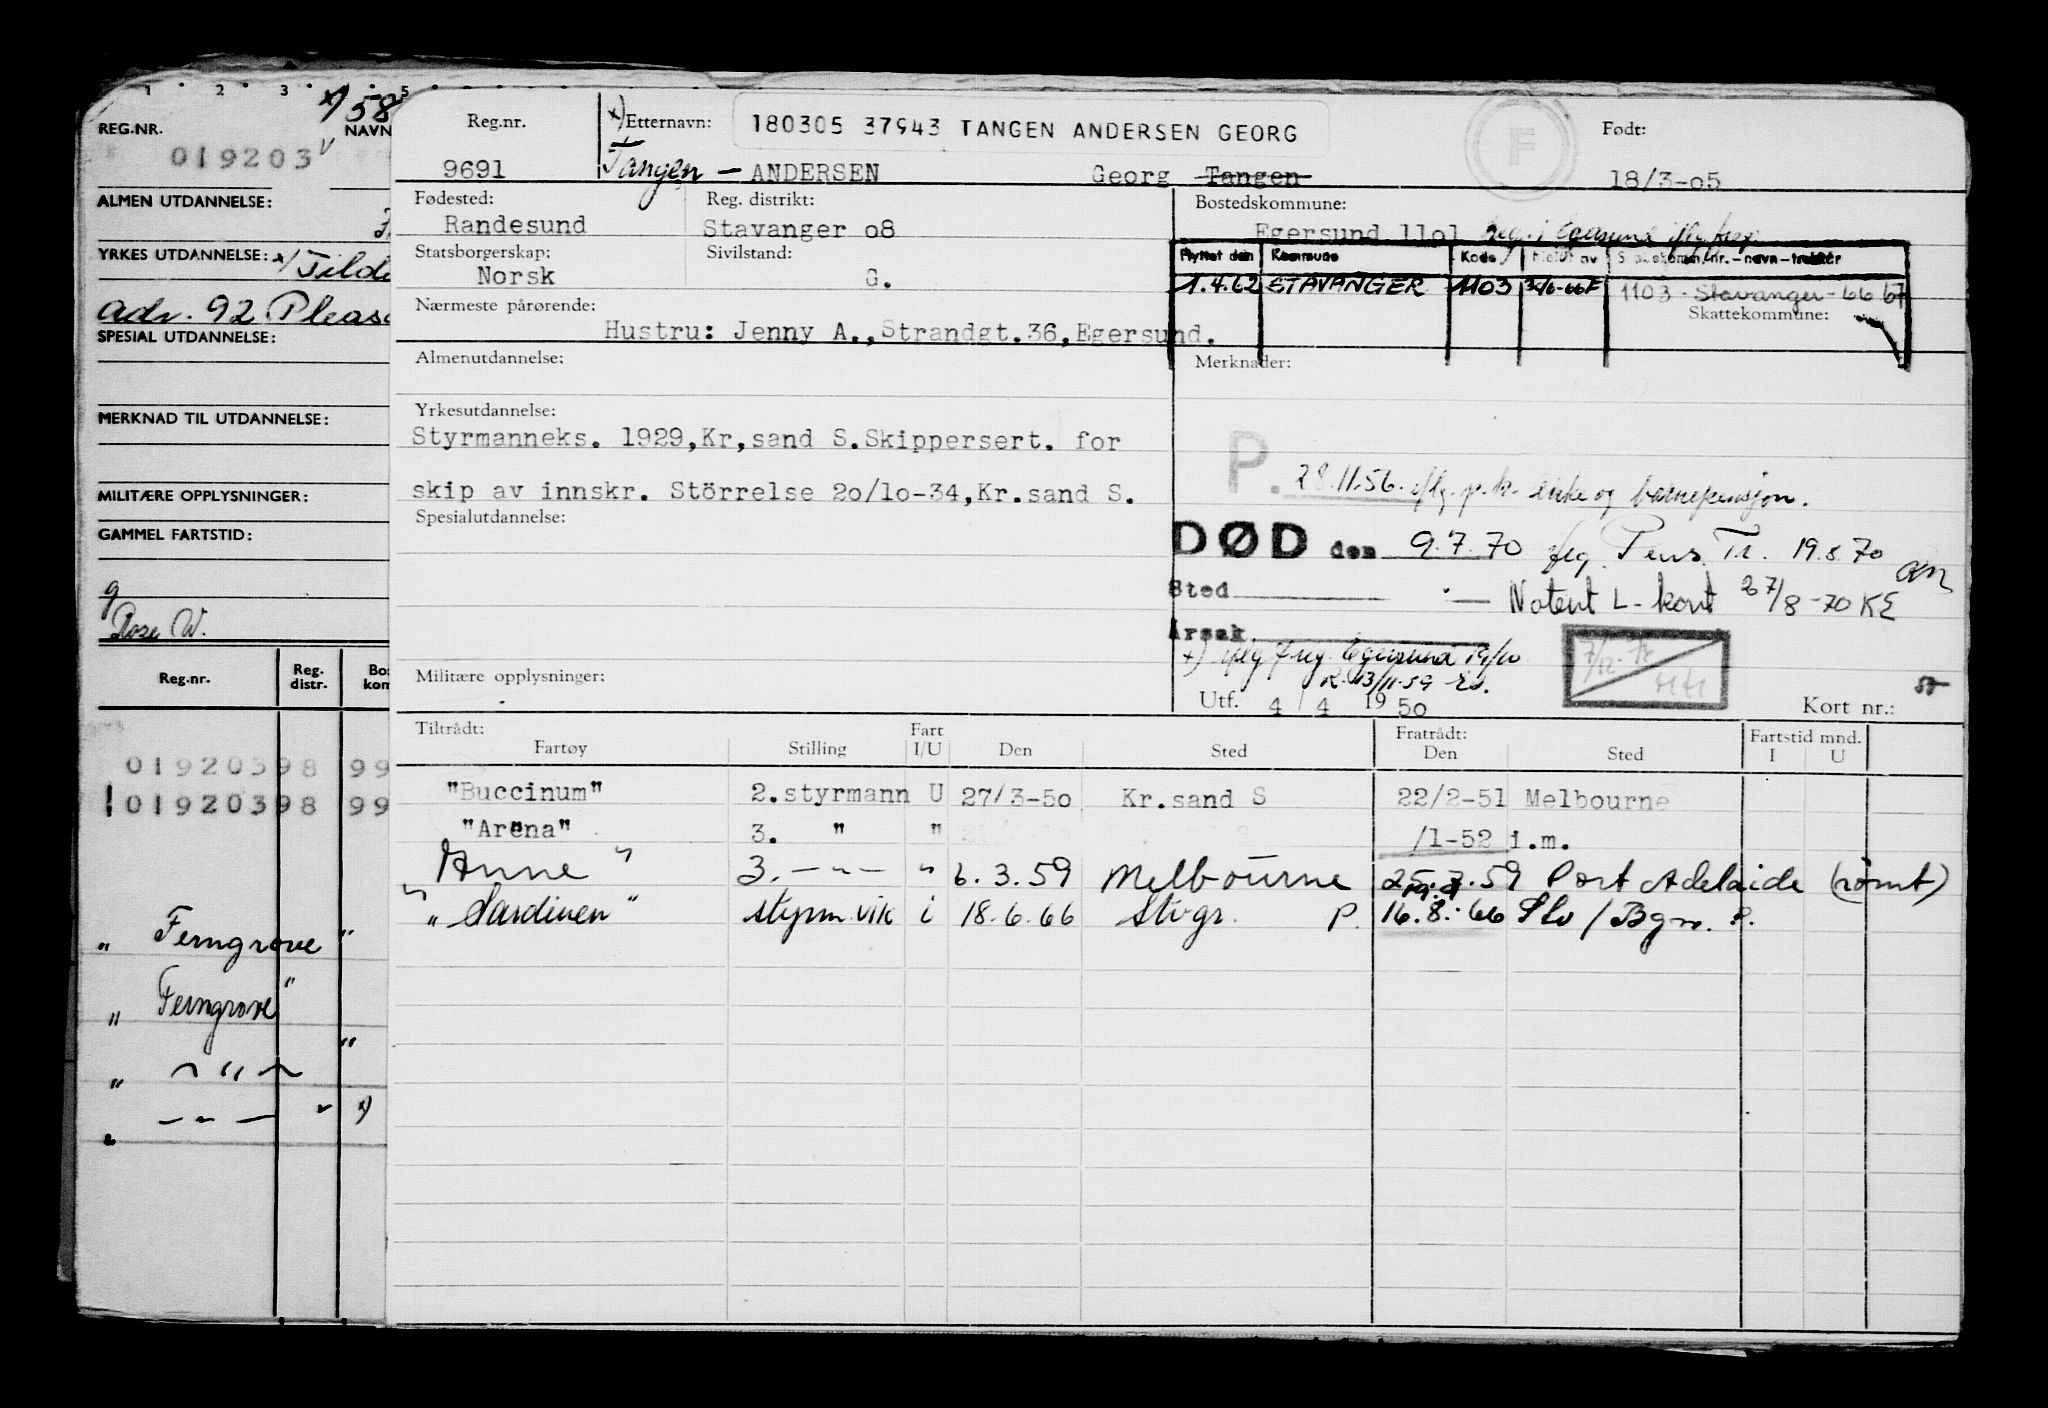 1 2 3 5
x) 58
REG.NR. NAVN
019203
ALMEN UTDANNELSE:
YRKES UTDANNELSE:
Adr. 92 Pleas
SPESIAL UTDANNELSE:
MERKNAD TIL UTDANNELSE:
MILITÆRE OPPLYSNINGER:
GAMMEL FARTSTID:
g
Rose W.
Reg.nr. Reg. distr. Bos kom
01920398 99
01920398 99
" Ferngrove "
" Ferngrove "
" — " — "
" — " — " x)
Reg.nr. x) Etternavn: 180305 37943 TANGEN ANDERSEN GEORG F Født:
9691 Tangen - ANDERSEN Georg Tangen 18/3-05
Fødested: Reg. distrikt: Bostedskommune:
Randesund Stavanger 08 Egersund 1101
Statsborgerskap: Sivilstand: Flyttet den Kommune Kode
Norsk G. 1.4.62 STAVANGER 1103 1103 - Stavanger - 66 67
Skattekommune:
Nærmeste pårørende:
Hustru: Jenny A., Strandgt.36, Egersund.
Almenutdannelse: Merknader:
Yrkesutdannelse:
Styrmanneks. 1929,Kr,sand S.Skippersert. for
P. 28.11.56. iflg. p.k. enke og barnepensjon.
skip av innskr. Störrelse 20/10-34,Kr.sand S.
Spesialutdannelse:
DØD den 9.7.70 Pens. Tr. 19.8.70
Sted — Notert L-kort 27/8-70 KE
Årsak
x) iflg. Egersund
13/11-59
Militære opplysninger:
Utf. 4 / 4 1950 Kort nr.:
Tiltrådt: Fratrådt: Fartstid mnd.
Fartøy Stilling Fart I/U Den Sted Den Sted I U
"Buccinum" 2.styrmann U 27/3-50 Kr.sand S 22/2-51 Melbourne
"Arena" 3. " " /1-52 i.m.
" Anne " 3. — " — " 6.3.59 Melbourne 25.3.59 Port Adelaide (rømt)
" Sardinen " styrm. vik i 18.6.66 Stvgr. P. 16.8.66 Slv / Bgn. P.